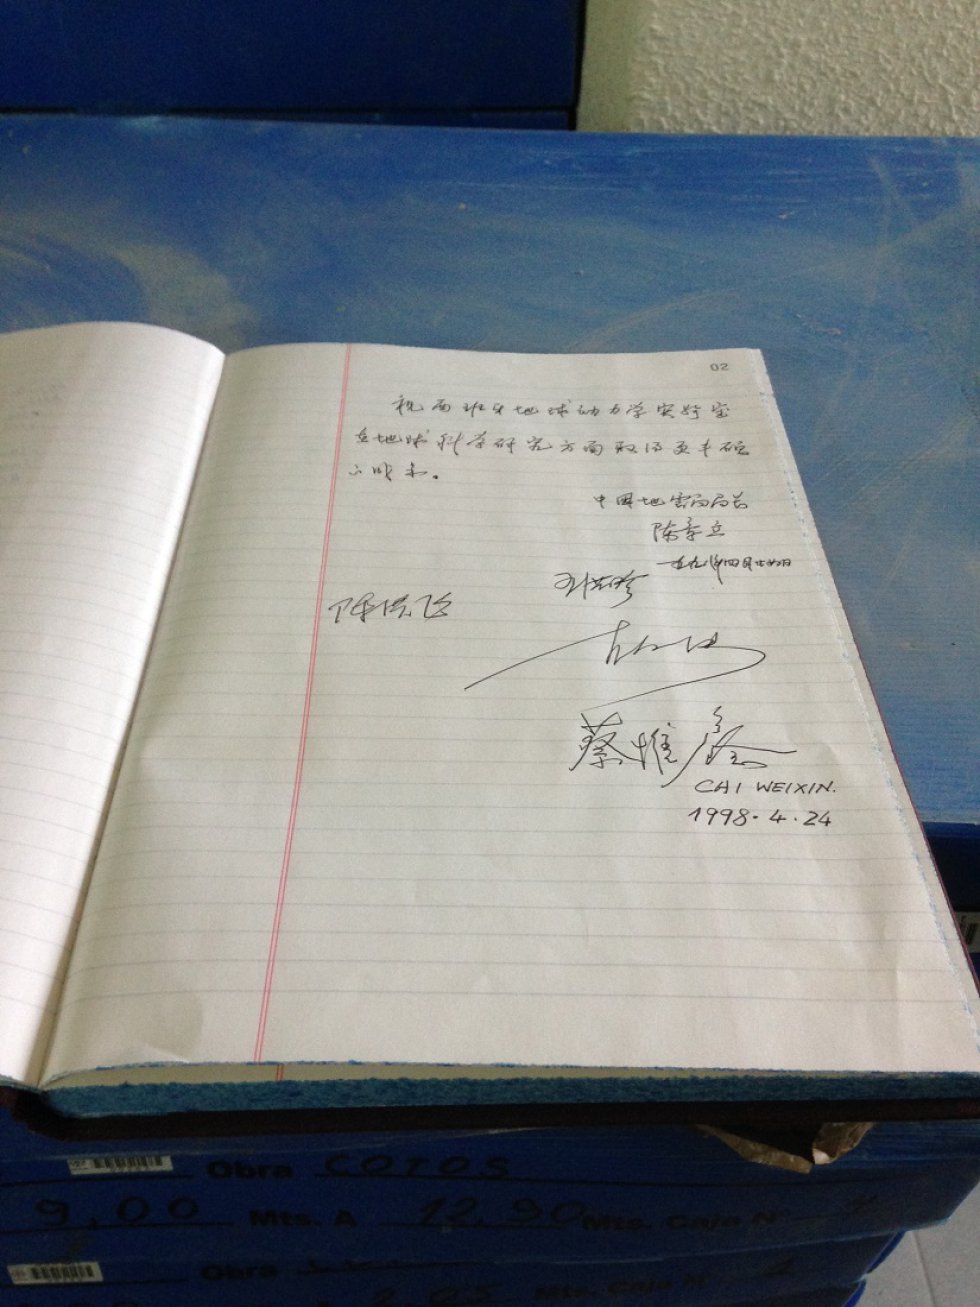 02
祝西班牙地球动力学实验室
在地球科学研究方面取得更丰硕
的成果。
中国地震局局长
陈章立
一九九八年四月廿四日
陈洪飞
蔡惟鑫
CAI WEIXIN.
1998.4.24
Obra COTOS
9,00 Mts. A 12,90 Mts. Caja Nº
Obra
Mts. Caja Nº